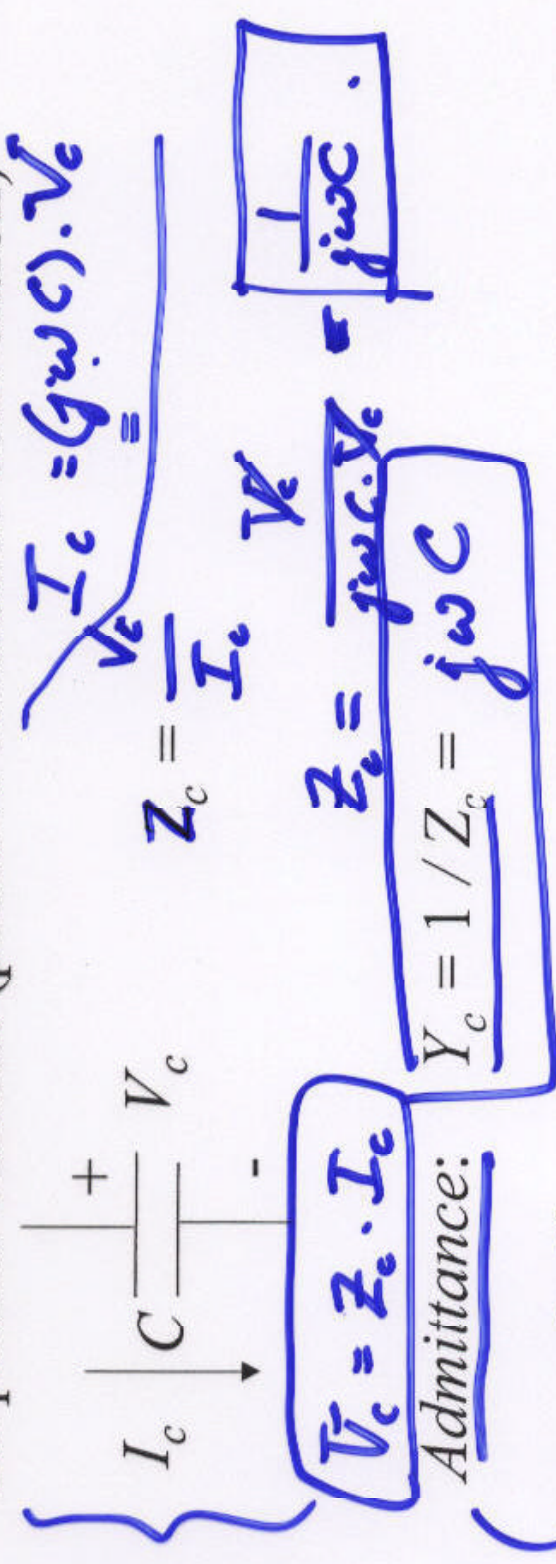 I_c = (jωC) · V_c
+
I_c C V_c
-
Z_c = V_c / I_c
V_c = Z_c · I_c
Z_c = V_c / (jωC · V_c) = 1 / (jωC)
Admittance: Y_c = 1 / Z_c = jωC